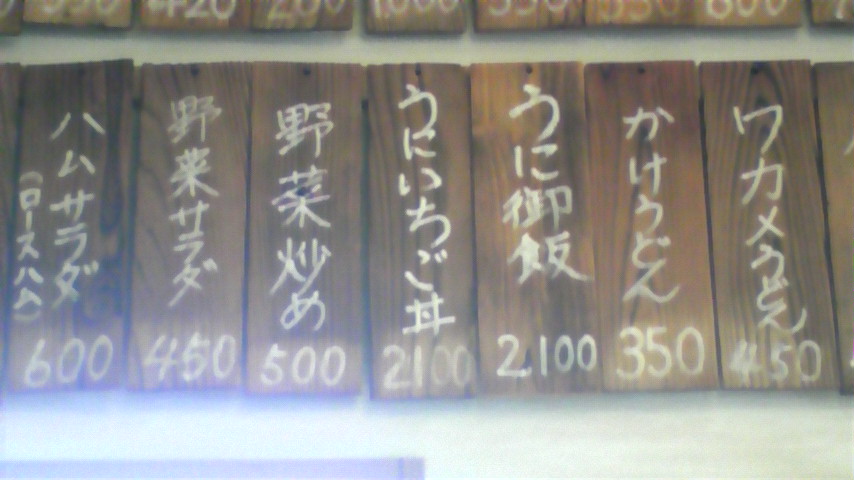 ワカメうどん
450
かけうどん
350
うに御飯
2,100
うにいちご丼
2100
野菜炒め
500
野菜サラダ
450
ハムサラダ
(ロースハム)
600